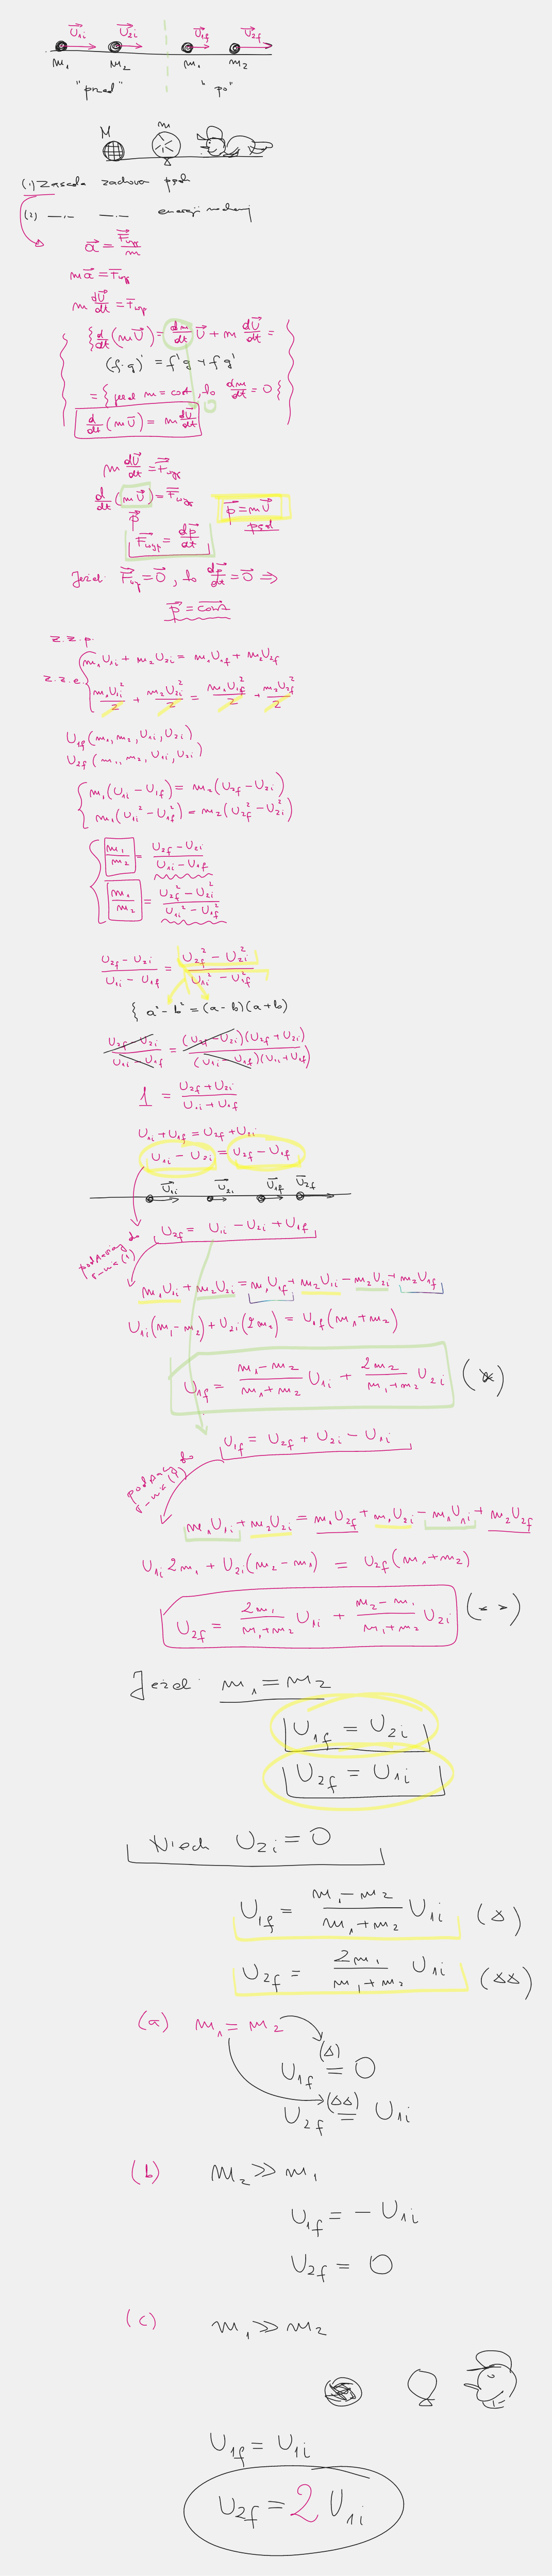 U⃗₁ᵢ U⃗₂ᵢ U⃗₁f U⃗₂f
m₁ m₂ m₁ m₂
"przed" "po"
M m
(1) Zasada zachowa pędu
(2) —·— —·— energii
a⃗ = F⃗wyp/m
m a⃗ = F⃗wyp
m dU⃗/dt = F⃗wyp
{ d/dt (m U⃗) = dm/dt U⃗ + m dU⃗/dt =
(f·g)' = f'g + f g'
= { jeżel m = const, to dm/dt = 0 }
0
d/dt (m U⃗) = m dU⃗/dt
m dU⃗/dt = F⃗wyp
d/dt (m U⃗) = F⃗wyp p⃗ = m U⃗
p⃗ pęd
F⃗wyp = dp⃗/dt
Jeżel: F⃗wyp = 0⃗, to dp⃗/dt = 0⃗ ⇒
p⃗ = const
z.z.p. m₁U₁ᵢ + m₂U₂ᵢ = m₁U₁f + m₂U₂f
z.z.e. m₁U₁ᵢ²/2 + m₂U₂ᵢ²/2 = m₁U₁f²/2 + m₂U₂f²/2
U₁f (m₁, m₂, U₁ᵢ, U₂ᵢ)
U₂f (m₁, m₂, U₁ᵢ, U₂ᵢ)
m₁(U₁ᵢ − U₁f) = m₂(U₂f − U₂ᵢ)
m₁(U₁ᵢ² − U₁f²) = m₂(U₂f² − U₂ᵢ²)
m₁/m₂ = (U₂f − U₂ᵢ)/(U₁ᵢ − U₁f)
m₁/m₂ = (U₂f² − U₂ᵢ²)/(U₁ᵢ² − U₁f²)
(U₂f − U₂ᵢ)/(U₁ᵢ − U₁f) = (U₂f² − U₂ᵢ²)/(U₁ᵢ² − U₁f²)
{ a² − b² = (a − b)(a + b)
(U₂f − U₂ᵢ)/(U₁ᵢ − U₁f) = (U₂f − U₂ᵢ)(U₂f + U₂ᵢ)/(U₁ᵢ − U₁f)(U₁ᵢ + U₁f)
1 = (U₂f + U₂ᵢ)/(U₁ᵢ + U₁f)
U₁ᵢ + U₁f = U₂f + U₂ᵢ
U₁ᵢ − U₂ᵢ = U₂f − U₁f
U⃗₁ᵢ U⃗₂ᵢ U⃗₁f U⃗₂f
U₂f = U₁ᵢ − U₂ᵢ + U₁f
podstawiamy do r-nia (1)
m₁U₁ᵢ + m₂U₂ᵢ = m₁U₁f + m₂U₁ᵢ − m₂U₂ᵢ + m₂U₁f
U₁ᵢ(m₁ − m₂) + U₂ᵢ(2m₂) = U₁f(m₁ + m₂)
U₁f = (m₁ − m₂)/(m₁ + m₂) U₁ᵢ + 2m₂/(m₁ + m₂) U₂ᵢ (*)
U₁f = U₂f + U₂ᵢ − U₁ᵢ
podstawiamy do r-nia (1)
m₁U₁ᵢ + m₂U₂ᵢ = m₁U₂f + m₁U₂ᵢ − m₁U₁ᵢ + m₂U₂f
U₁ᵢ 2m₁ + U₂ᵢ(m₂ − m₁) = U₂f(m₁ + m₂)
U₂f = 2m₁/(m₁ + m₂) U₁ᵢ + (m₂ − m₁)/(m₁ + m₂) U₂ᵢ (**)
Jeżel: m₁ = m₂
U₁f = U₂ᵢ
U₂f = U₁ᵢ
Niech U₂ᵢ = 0
U₁f = (m₁ − m₂)/(m₁ + m₂) U₁ᵢ (Δ)
U₂f = 2m₁/(m₁ + m₂) U₁ᵢ (ΔΔ)
(a) m₁ = m₂
(Δ)
U₁f = 0
(ΔΔ)
U₂f = U₁ᵢ
(b) m₂ ≫ m₁
U₁f = − U₁ᵢ
U₂f = 0
(c) m₁ ≫ m₂
U₁f = U₁ᵢ
U₂f = 2 U₁ᵢ